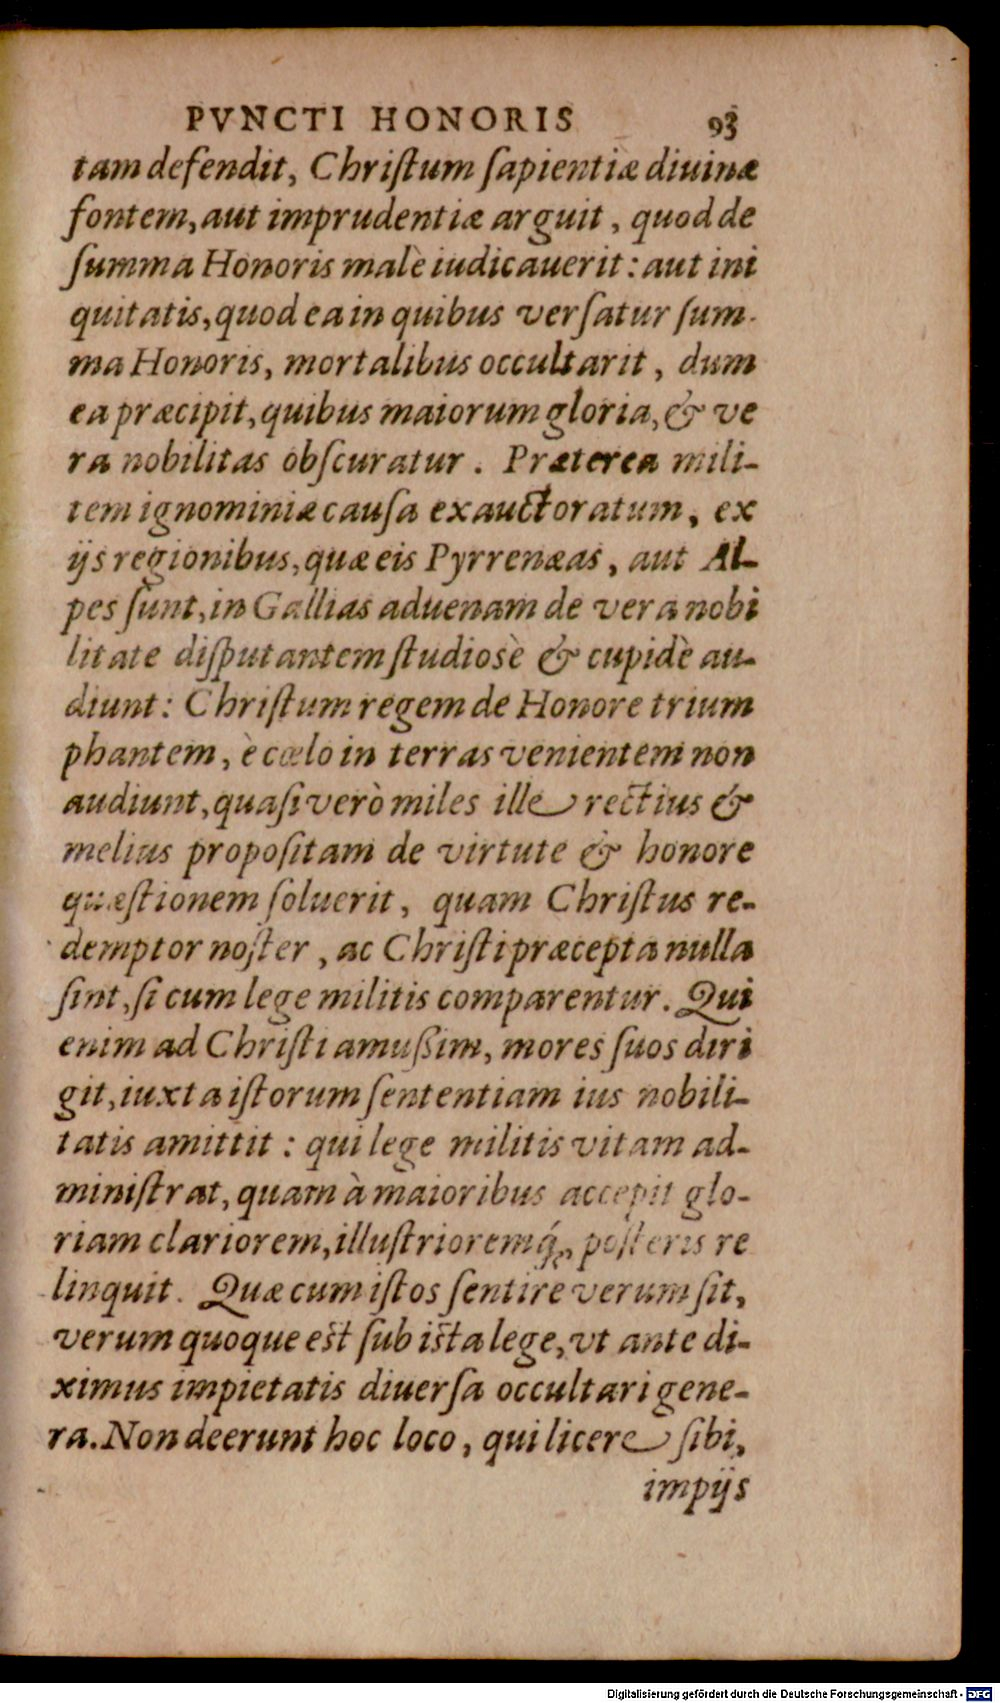 PVNCTI HONORIS 93
tam defendit, Chriſtum ſapientiæ diuinæ
fontem, aut imprudentiæ arguit, quod de
ſumma Honoris malè iudicauerit: aut ini
quitatis, quod ea in quibus verſatur ſum-
ma Honoris, mortalibus occultarit, dum
ea præcipit, quibus maiorum gloria, & ve
ra nobilitas obſcuratur. Præterea mili-
tem ignominiæ cauſa exauctoratum, ex
ijs regionibus, quæ eis Pyrrenæas, aut Al-
pes ſunt, in Gallias aduenam de vera nobi
litate diſputantem ſtudiosè & cupidè au-
diunt: Chriſtum regem de Honore trium
phantem, è cœlo in terras venientem non
audiunt, quaſi verò miles ille rectius &
melius propoſitam de virtute & honore
quæſtionem ſoluerit, quam Chriſtus re-
demptor noſter, ac Chriſti præcepta nulla
ſint, ſi cum lege militis comparentur. Qui
enim ad Chriſti amußim, mores ſuos diri
git, iuxta iſtorum ſententiam ius nobili-
tatis amittit: qui lege militis vitam ad-
miniſtrat, quam à maioribus accepit glo-
riam clariorem, illuſtrioremq́; poſteris re
linquit. Quæ cum iſtos ſentire verum ſit,
verum quoque eſt ſub iſta lege, vt ante di-
ximus impietatis diuerſa occultari gene-
ra. Non deerunt hoc loco, qui licere ſibi,
impijs
Digitalisierung gefördert durch die Deutsche Forschungsgemeinschaft - DFG